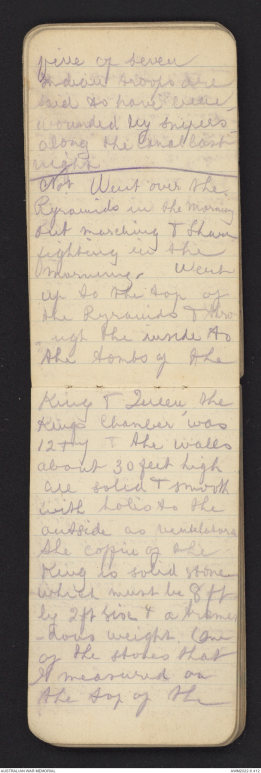 five of seven
Indian troops are
said to have been
wounded by snipers
along the Canal last
night
Oct Went over the
Pyramids in the morning
but marching & sham
fighting in the
morning. Went
up to the top of
the Pyramids & thro
-ugh the inside to
the tombs of the
King & Queen the
Kings Chamber was
& the walls
about 30 feet high
are solid & smooth
with holes to the
outside as ventilators
the coffin of the
King is solid stone
which must be 8ft
by 2ft size & a tremen
-dous weight. One
of the stones that
I measured on
the top of the
AUSTRALIAN WAR MEMORIAL